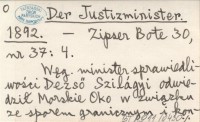 0
Der Justizminister.
1892. — Zipser Bote 30,
nr 37: 4.
Węg. minister sprawiedli-
wości Dezsö Szilágyi odwie-
dził Morskie Oko w związku
ze sporem granicznym, i kon-